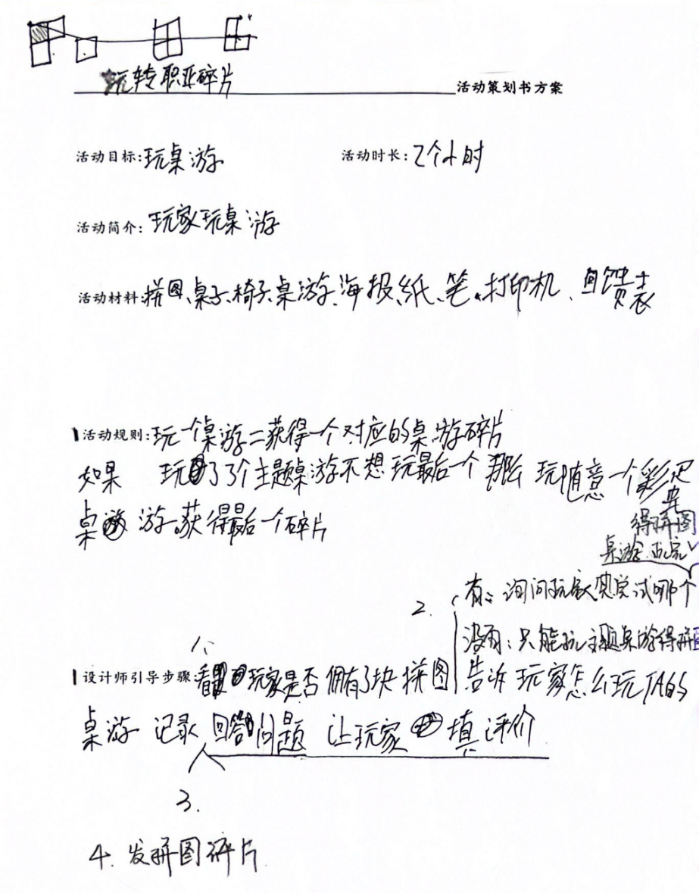 玩转职业碎片 活动策划书方案
活动目标:玩桌游 活动时长:2个小时
活动简介:玩家玩桌游
活动材料:拼图、桌子、椅子、桌游、海报、纸、笔、打印机、回馈表
活动规则:玩一个桌游=获得一个对应的桌游碎片
如果 玩了3个主题桌游不想玩最后一个 那么 玩随意一个彩
桌游 获得最后一个碎片
得拼图
桌游 玩家
2.
有: 询问玩家想尝试哪个
没有: 只能玩主题桌游得拼图
1.
设计师引导步骤:看 玩家是否拥有3块拼图 告诉玩家怎么玩TAGS
桌游 记录 回答问题 让玩家 填评价
3.
4. 发拼图碎片